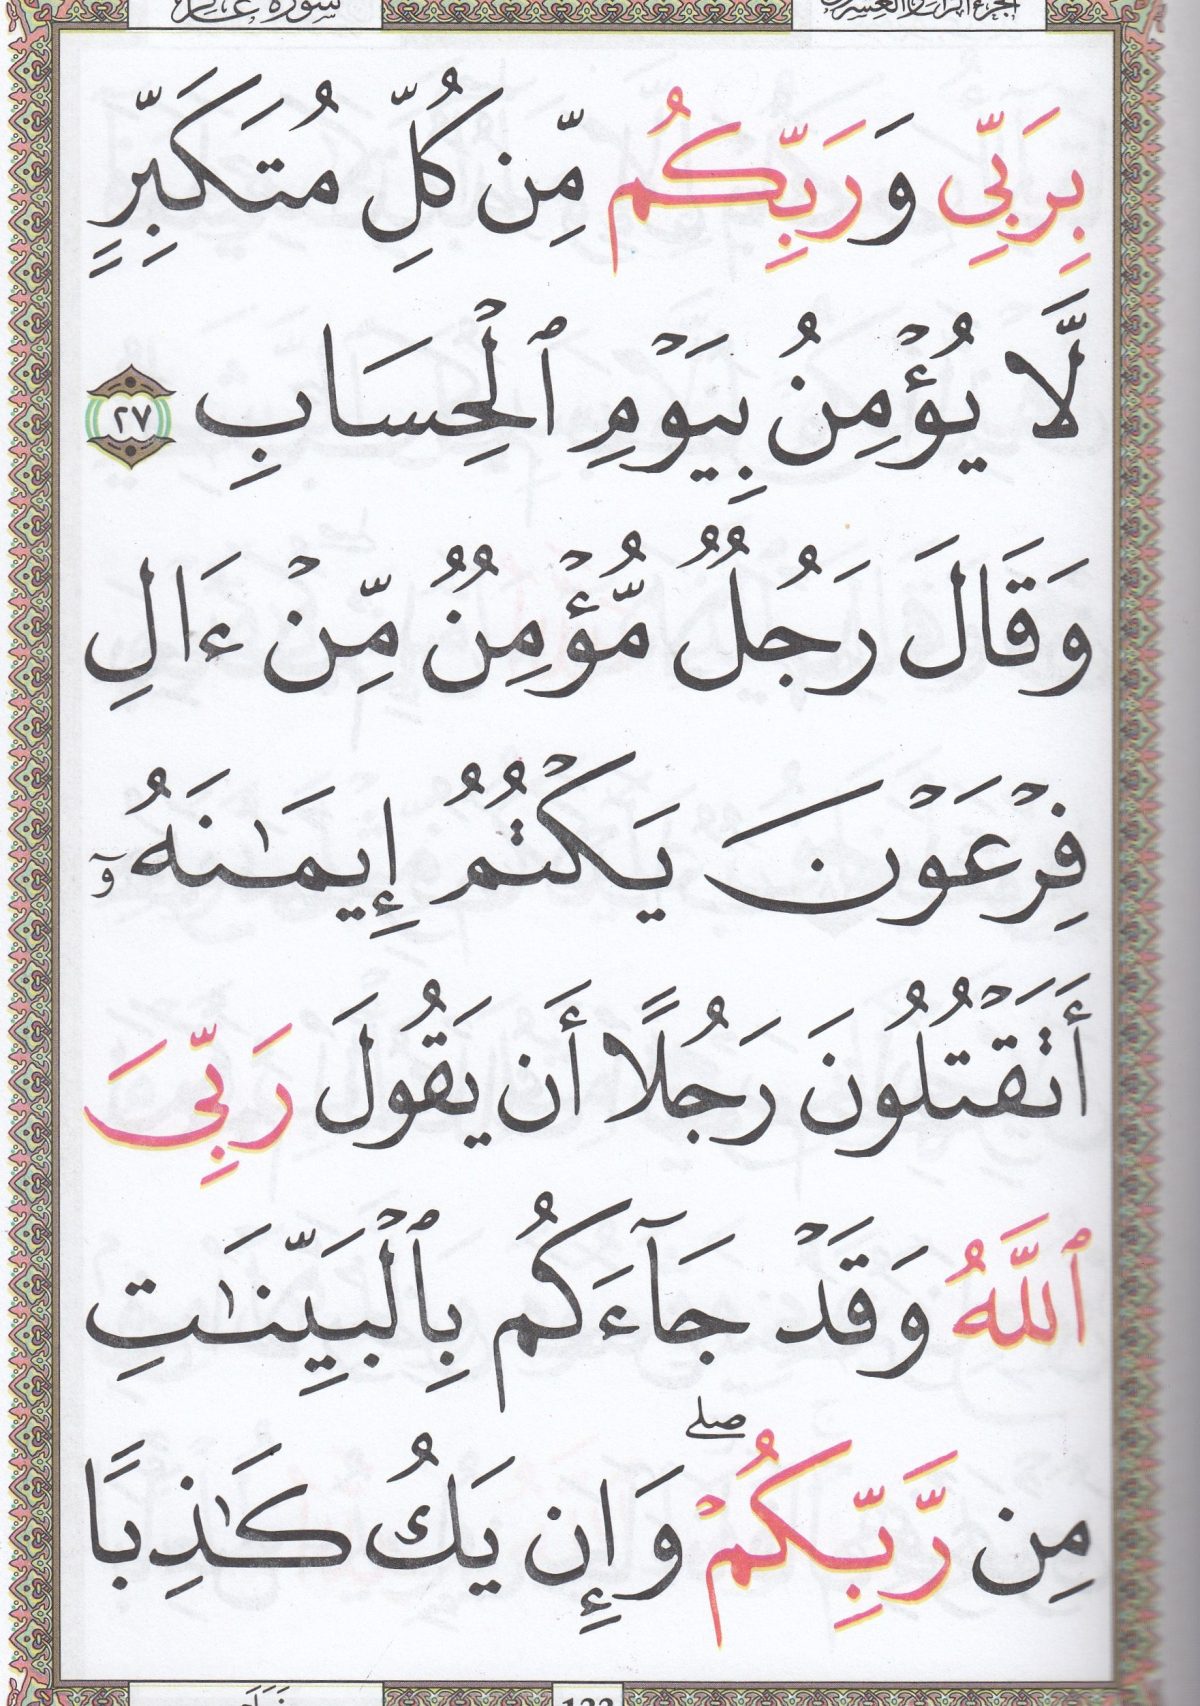 الجزء الرابع والعشرون
سورة غافر
بِرَبِّي وَرَبِّكُم مِّن كُلِّ مُتَكَبِّرٍ
لَّا يُؤْمِنُ بِيَوْمِ ٱلْحِسَابِ ٢٧
وَقَالَ رَجُلٌ مُّؤْمِنٌ مِّنْ ءَالِ
فِرْعَوْنَ يَكْتُمُ إِيمَٰنَهُۥٓ
أَتَقْتُلُونَ رَجُلًا أَن يَقُولَ رَبِّىَ
ٱللَّهُ وَقَدْ جَآءَكُم بِٱلْبَيِّنَٰتِ
مِن رَّبِّكُمْ ۖ وَإِن يَكُ كَٰذِبًا